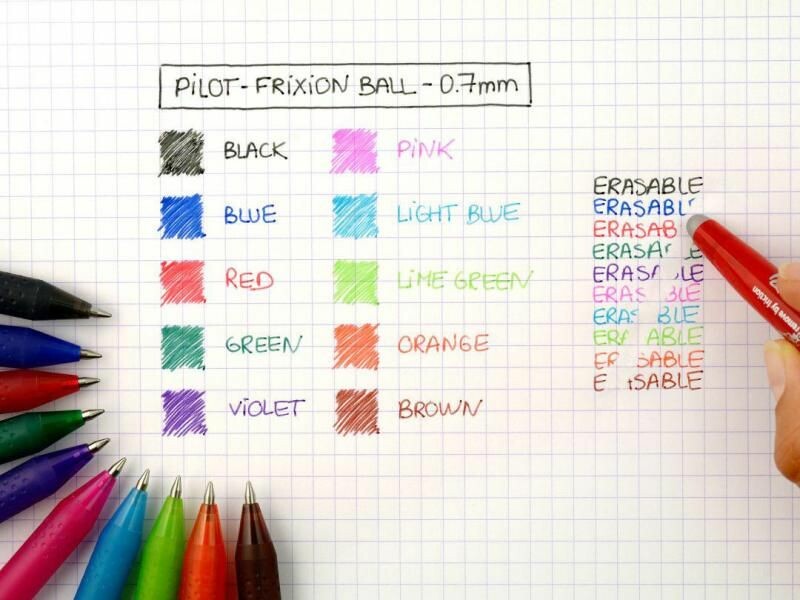 PiLOT - FRiXiON BALL - 0.7mm
BLACK
BLUE
RED
GREEN
ViOLET
PiNK
LiGHT BLUE
LiME GREEN
ORANGE
BROWN
ERASABLE
ERASABL
ERASAB
ERASA LE
ERAS LE
ERAS BLE
ERA BLE
ER ABLE
E SABLE
E SABLE
remove by friction